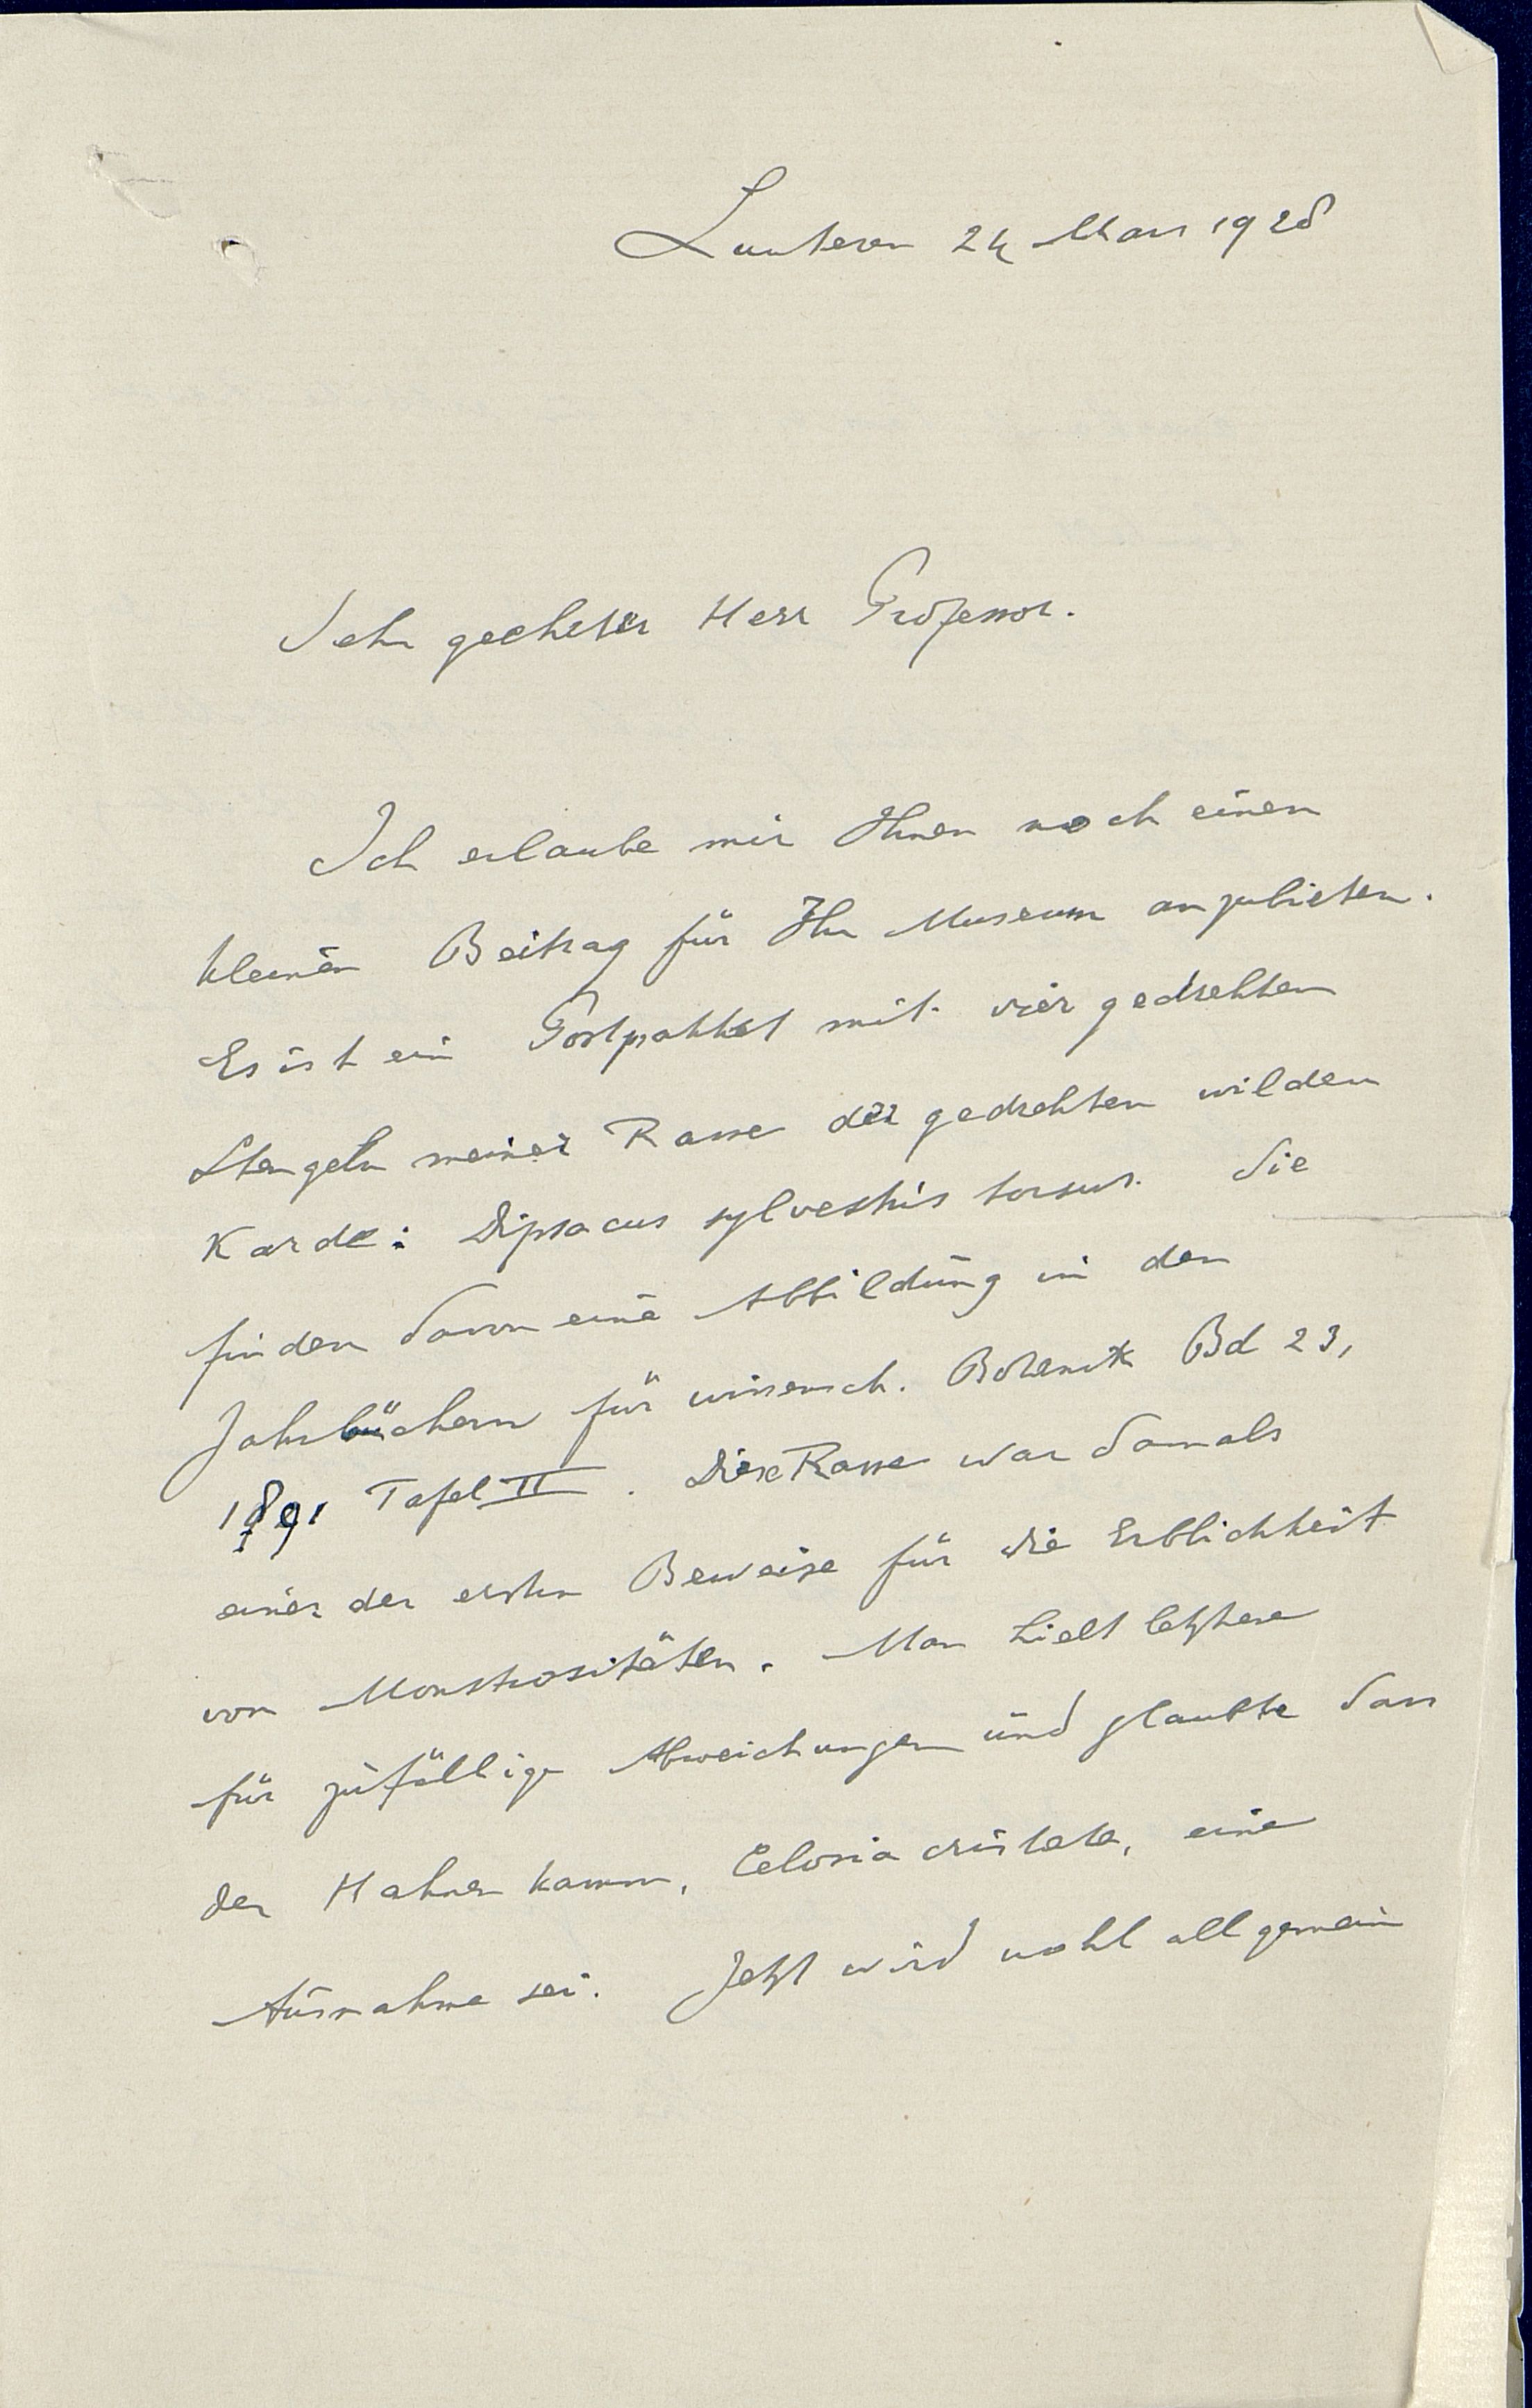 Lunteren 24 Mars 1928
Sehr geehrter Herr Professor.
Ich erlaube mir Ihnen noch einen
kleinen Beitrag für Ihr Museum anzubieten.
Es ist ein Postpakket mit vier gedrehten
Stengeln meiner Rasse der gedrehten wilden
Karde: Dipsacus sylvestris torsus. Sie
finden davon eine Abbildung in den
Jahrbüchern für wissensch. Botanik Bd 23,
1891 Tafel II. Diese Rasse war damals
einer der ersten Beweise für die Erblichkeit
von Monstrositäten. Man hielt letztere
für zufällige Abweichungen und glaubte dass
der Hahnenkamm, Celosia cristata, eine
Ausnahme sei. Jetzt wird wohl allgemein